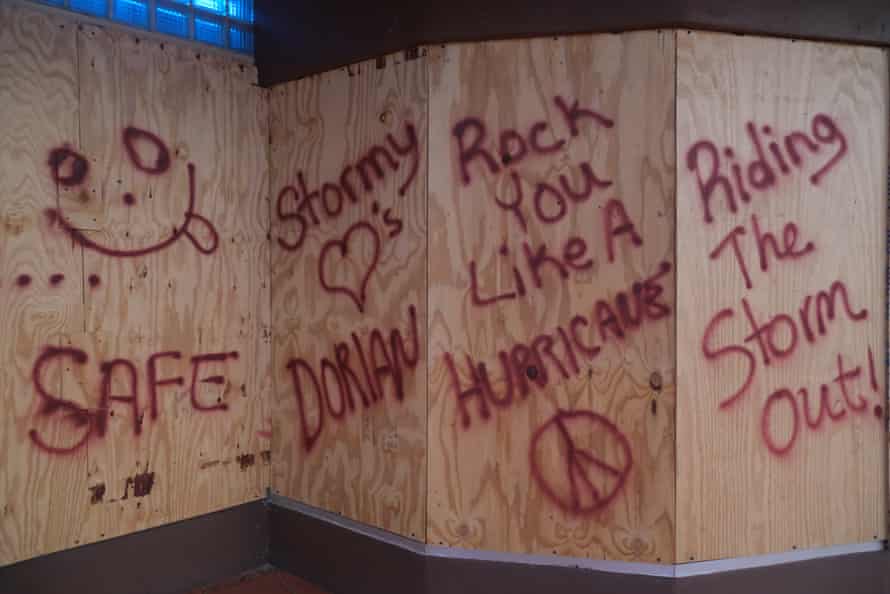 ...
SAFE
Stormy
♡'s
DORIAN
Rock
You
Like A
HURRICANE
Riding
The
Storm
Out!